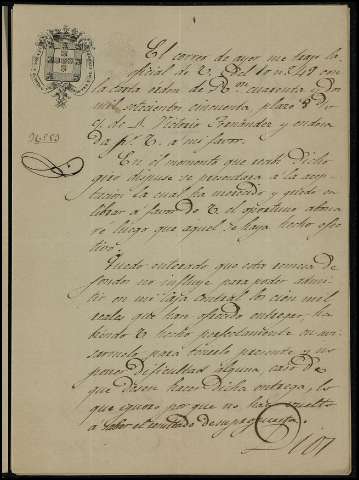 El correo de ayer me trajo la
oficial de V. del 10 n.º 249 con
la carta orden de Rvn cuarenta y dos
mil setecientos cincuenta plazo 8 d
de D. Victorio Fernández y endosa
da p.r V. a mi favor.
En el momento que recibí dicho
giro dispuse se procediera a la acep
tación la cual ha marcado y quedo en
librar a favor de V. el oportuno abona
ré luego que aquel se haya hecho efec
tivo.
Quedo enterado que esta remesa de
fondos no influye para poder admi
tir en mi Caja Central los cien mil
reales que han ofrecido entregar, ha
biendo V. hecho perfectamente en
para tenerlo presente y no
poner dificultad alguna caso de
que deseen hacer dicha entrega, lo
que ignoro por que no han vuelto
a saber el resultado de su propuesta.
Dios